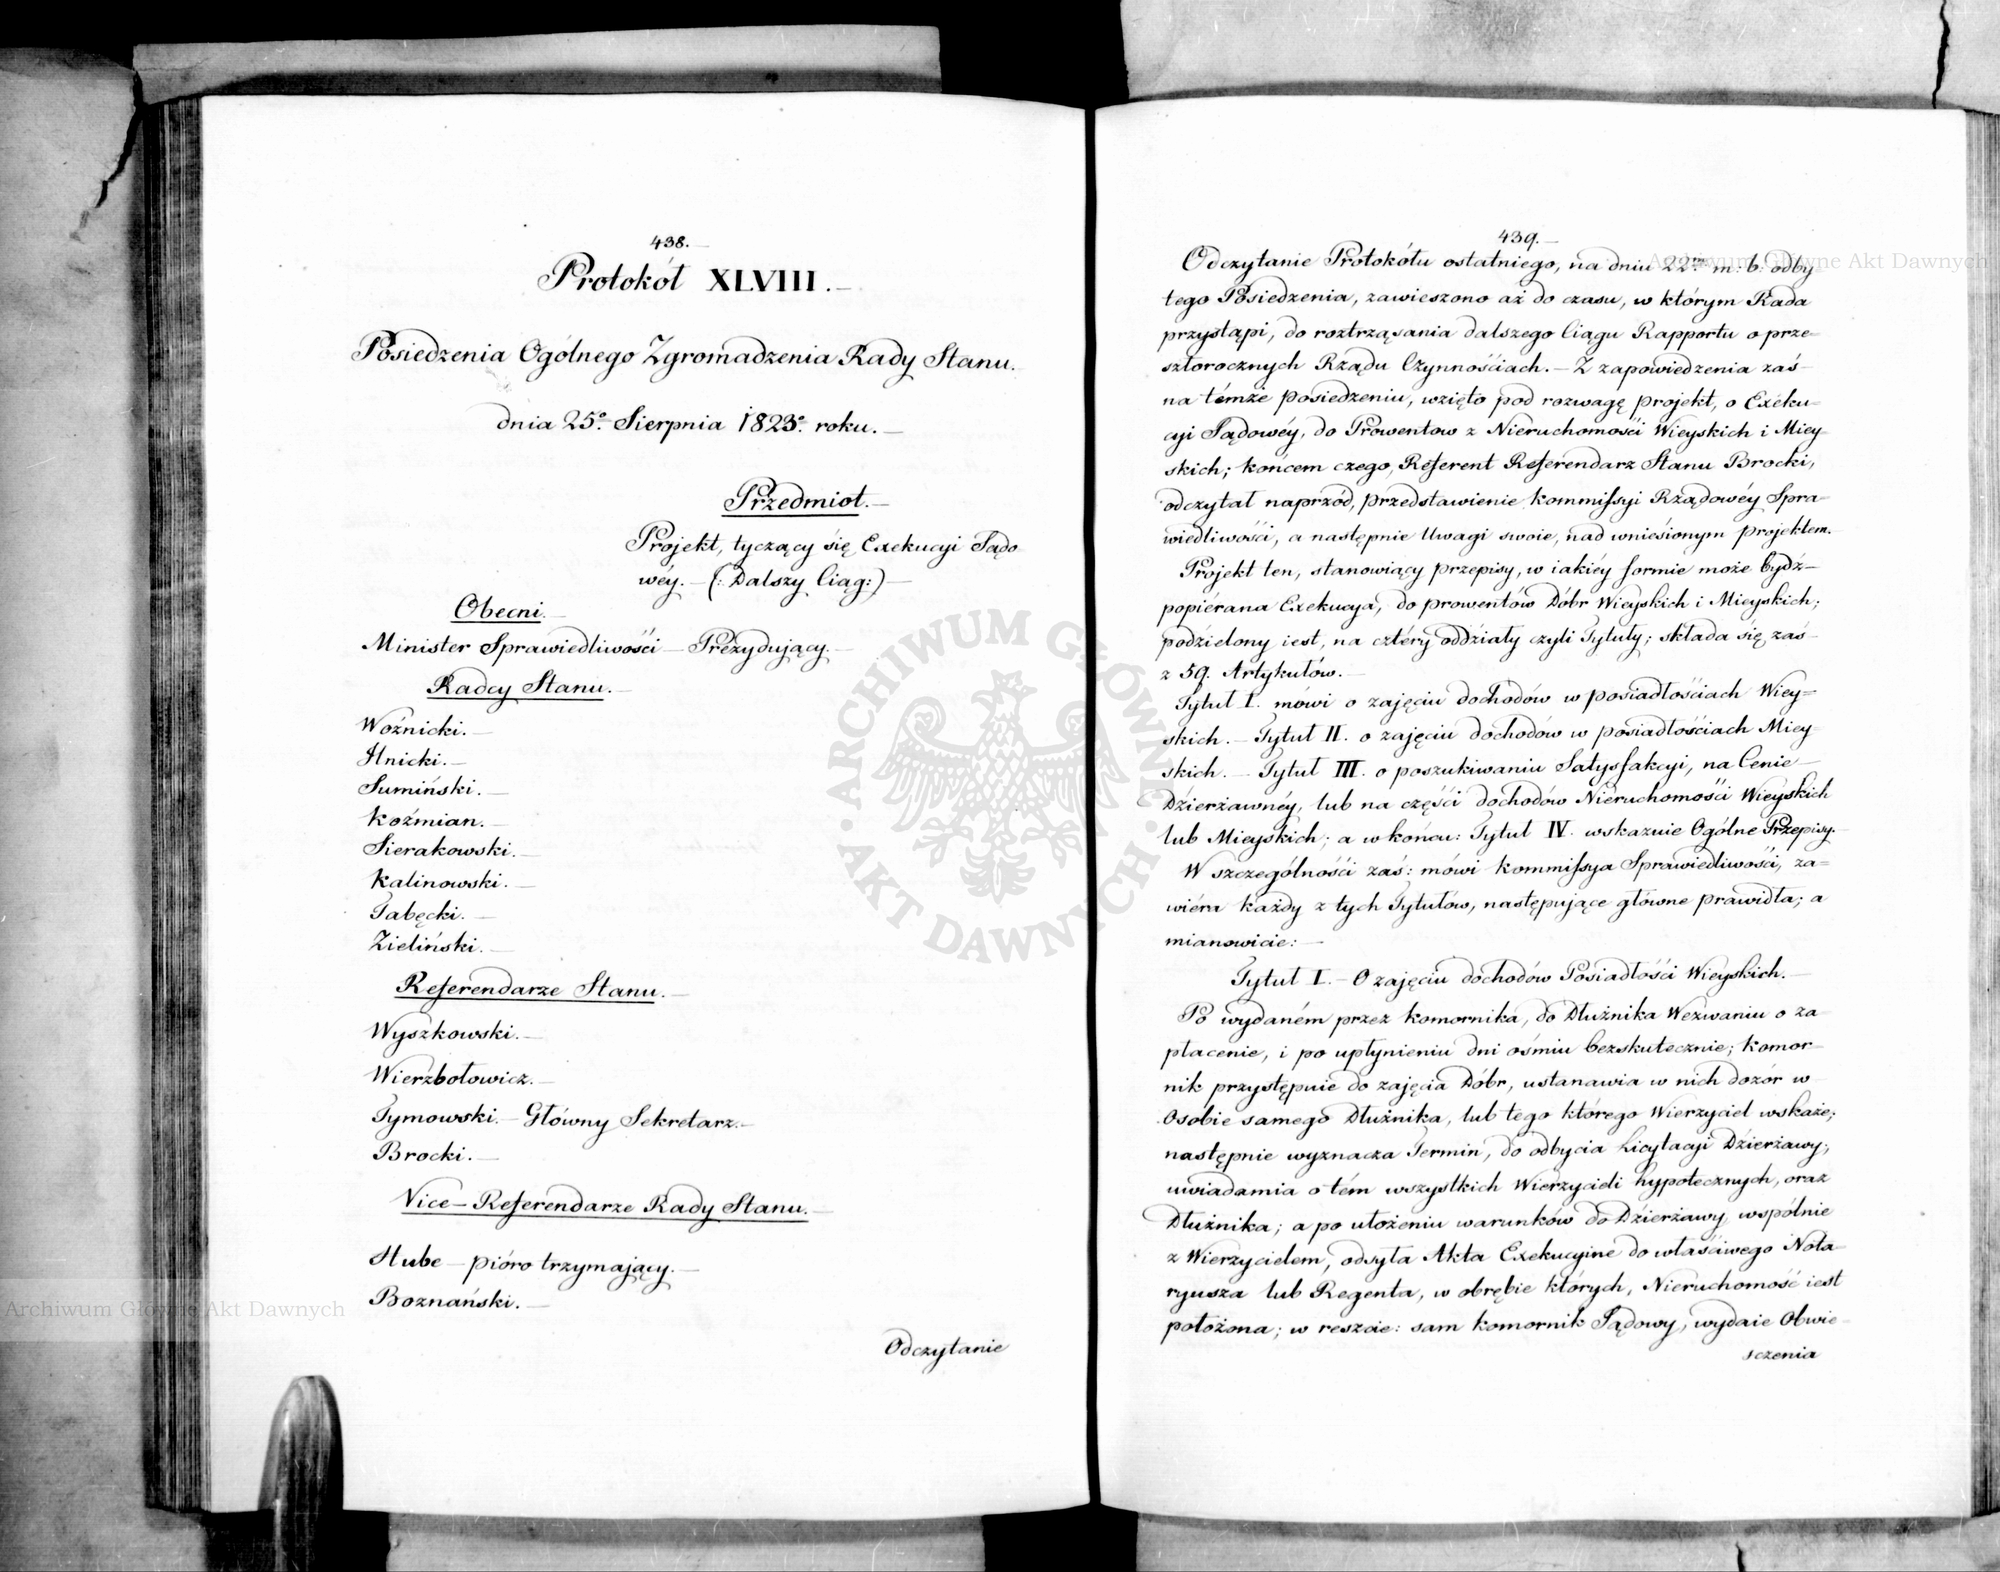 438.
Protokół XLVIII.
Posiedzenia Ogólnego Zgromadzenia Rady Stanu.
dnia 25º Sierpnia 1823º roku.
Przedmiot.
Projekt, tyczący się Exekucyi Sądo
wéy. — (: Dalszy Ciąg :)
Obecni.
Minister Sprawiedliwości — Prezydujący.
Radcy Stanu.
Woźnicki.
Hnicki.
Sumiński.
Koźmian.
Sierakowski.
Kalinowski.
Tabęcki.
Zieliński.
Referendarze Stanu.
Wyszkowski.
Wierzbołowicz.
Tymowski. — Główny Sekretarz.
Brocki.
Vice-Referendarze Rady Stanu.
Hube — pióro trzymający.
Boznański.
Odczytanie
439.
Odczytanie Protokółu ostatniego, na dniu 22m m: b: odby
tego Posiedzenia, zawieszono aż do czasu, w którym Rada
przystąpi, do roztrząsania dalszego Ciągu Rapportu o prze-
szłorocznych Rządu Czynnościach. — Z zapowiedzenia zaś
na témże posiedzeniu, wzięto pod rozwagę projekt, o Exeku-
cyi Sądowéy, do Prowentow z Nieruchomości Wieyskich i Miey-
skich; końcem czego, Referent Referendarz Stanu Brocki,
odczytał naprzód, przedstawienie Kommissyi Rządowéy Spra-
wiedliwości, a następnie Uwagi swoie, nad wniesionym projektem.
Projekt ten, stanowiący przepisy, w iakiéy formie może bydź
popiérana Exekucya, do prowentów Dóbr Wieyskich i Mieyskich;
podzielony iest, na cztéry oddziały czyli Tytuły; składa się zaś
z 59. Artykułów.
Tytuł I. mówi o zajęciu dochodów w posiadłościach Wiey-
skich. — Tytuł II. o zajęciu dochodów w posiadłościach Miey-
skich. — Tytuł III. o poszukiwaniu Satysfakcyi, na Cenie
Dzierżawnéy, lub na części dochodów Nieruchomości Wieyskich
lub Mieyskich; a w końcu: Tytuł IV. wskazuie Ogólne Przepisy.
W szczególności zaś: mówi Kommissya Sprawiedliwości, za-
wiéra każdy z tych Tytułów, następujące główne prawidła; a
mianowicie:
Tytuł I. — O zajęciu dochodów Posiadłości Wieyskich.
Po wydaném przez Komornika, do Dłużnika Wezwaniu o za
płacenie, i po upłynieniu dni ośmiu bezskutecznie; Komor-
nik przystępuie do zajęcia Dóbr, ustanawia w nich dozór w
Osobie samego Dłużnika, lub tego którego Wierzyciel wskaże;
następnie wyznacza Termin, do odbycia Licytacyi Dzierżawy;
uwiadamia o tém wszystkich Wierzycieli hypotecznych, oraz
Dłużnika; a po ułożeniu warunków do Dzierżawy wspólnie
z Wierzycielem, odsyła Akta Exekucyine do właściwego Nota-
ryusza lub Regenta, w obrębie których, Nieruchomość iest
położona; w reszcie: sam Komornik Sądowy, wydaie Obwie-
sczenia
ARCHIWUM GŁÓWNE AKT DAWNYCH
Archiwum Główne Akt Dawnych
Archiwum Główne Akt Dawnych